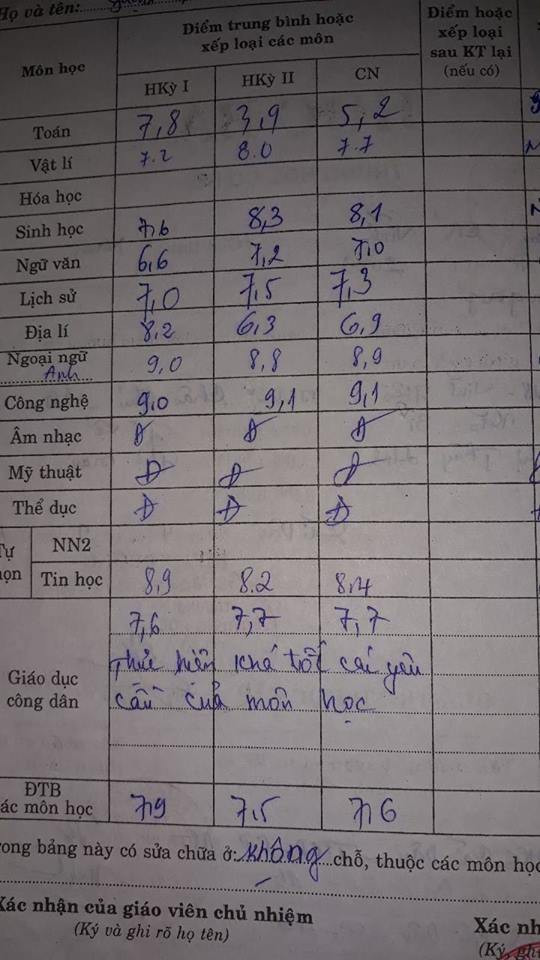 Họ và tên:
Môn học
Điểm trung bình hoặc
xếp loại các môn
Điểm hoặc
xếp loại
sau KT lại
(nếu có)
HKỳ I HKỳ II CN
Toán 7,8 3,9 5,2
Vật lí 7.2 8.0 7.7
Hóa học
Sinh học 7,6 8,3 8,1
Ngữ văn 6,6 7,2 7,0
Lịch sử 7,0 7,5 7,3
Địa lí 8,2 6,3 6,9
Ngoại ngữ 9,0 8,8 8,9
Anh
Công nghệ 9,0 9,1 9,1
Âm nhạc Đ Đ Đ
Mỹ thuật Đ Đ Đ
Thể dục Đ Đ Đ
Tự NN2
họn Tin học 8,9 8.2 8,4
7,6 7,7 7,7
Giáo dục
công dân
Thực hiện khá tốt cái yêu
cầu của môn học
ĐTB
các môn học 7,9 7,5 7,6
rong bảng này có sửa chữa ở: không chỗ, thuộc các môn học
Xác nhận của giáo viên chủ nhiệm
(Ký và ghi rõ họ tên)
Xác nh
(Ký, ghi